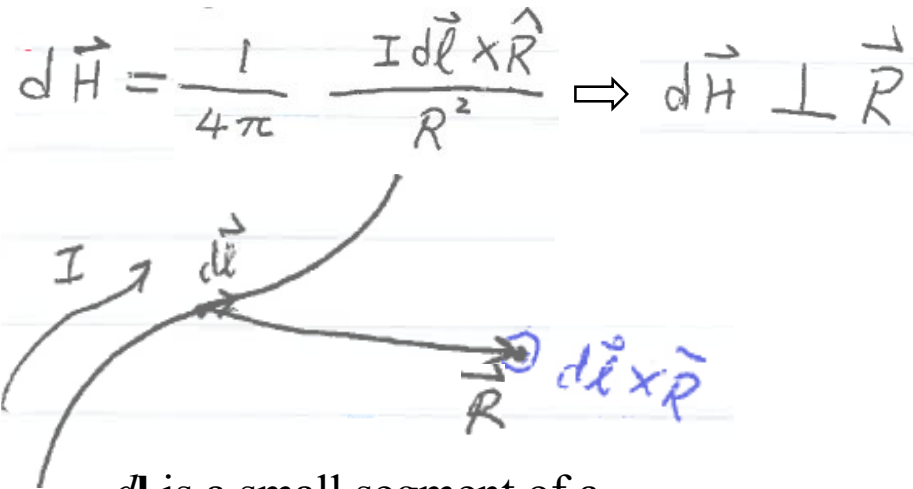 dH⃗ = 1/4π I dℓ⃗ × R̂/R² ⇨ dH⃗ ⊥ R⃗
I dℓ⃗
dℓ⃗ × R⃗
R⃗
dl is a small segment of a